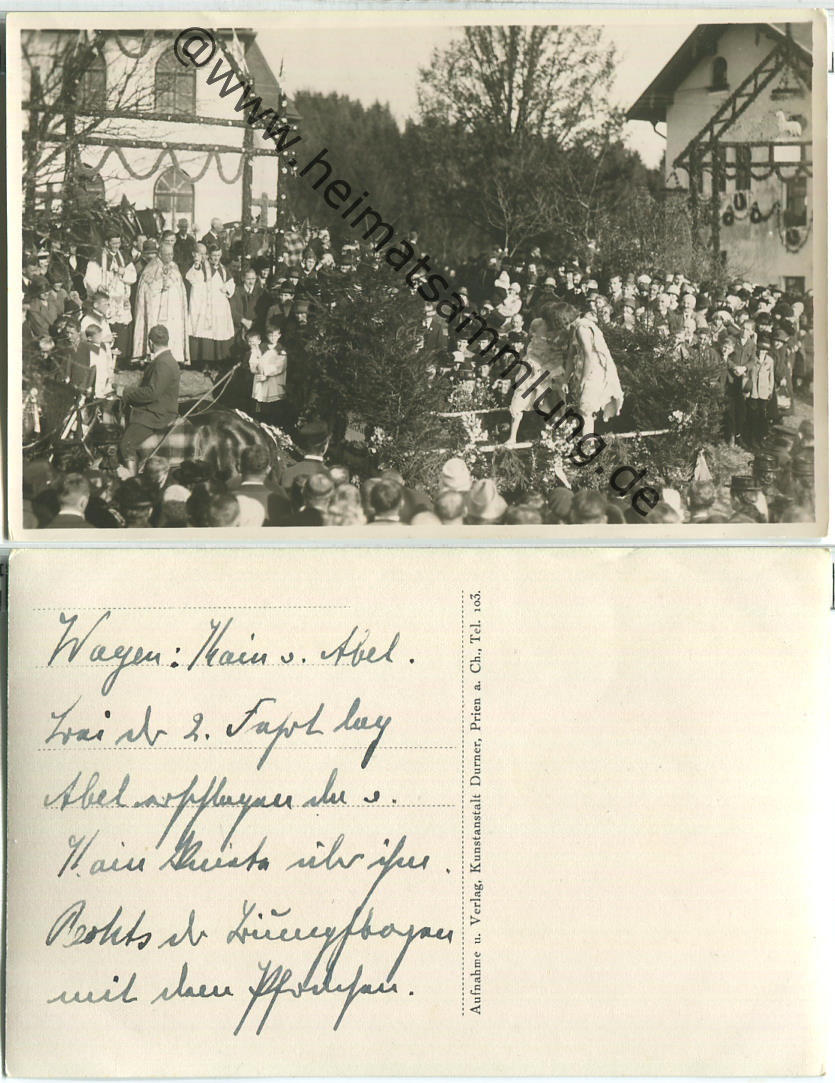 @www.heimatsammlung.de
Wagen: Kain u. Abel.
Bei der 2. Fahrt lag
Abel erschlagen da u.
Kain kniete über ihm.
Rechts der Triumpfbogen
mit dem Pferdchen.
Aufnahme u. Verlag, Kunstanstalt Durner, Prien a. Ch., Tel. 103.